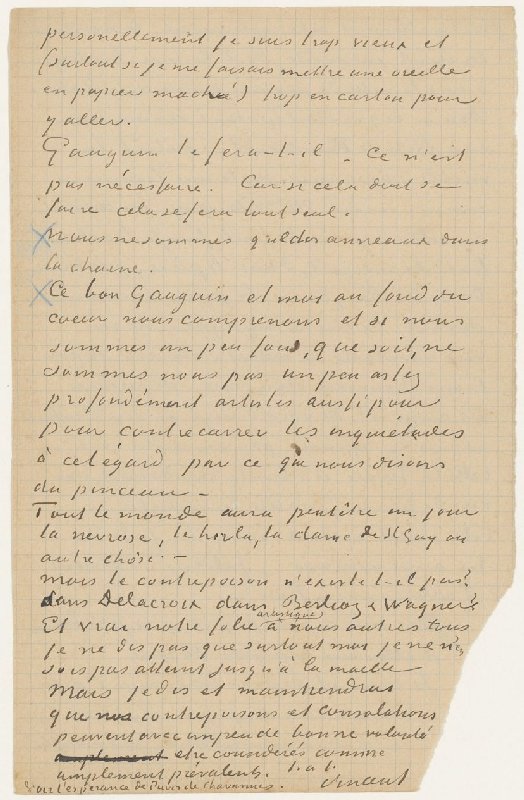 personellement je suis trop vieux et
(surtout si je me faisais mettre une oreille
en papier maché) trop en carton pour
y aller.
Gauguin le fera-t-il – Ce n'est
pas nécessaire. Car si cela doit se
faire cela se fera tout seul.
nous ne sommes que des anneaux dans
la chaine.
Ce bon Gauguin et moi au fond du
coeur nous comprenons et si nous
sommes un peu fous, que soit, ne
sommes nous pas un peu assez
profondément artistes aussi pour
pour contrecarrer les inquiétudes
à cet égard par ce que nous disons
du pinceau –
Tout le monde aura peutêtre un jour
la nevrose, le horla, la danse de St Guy ou
autre chose. –
mais le contrepoison n'existe t-il pas?
dans Delacroix dans Berlioz & Wagner?
Et vrai notre folie artistique à nous autres tous
je ne dis pas que surtout moi je ne n'en
sois pas atteint jusqu'à la maelle
Mais je dis et maintiendrai
que nos contrepoisons et consolations
peuvent avec un peu de bonne volonté
amplement etre considérés comme
amplement prévalents. t. à t.
Vincent
Voir l'espérance de Puvis de Chavannes.